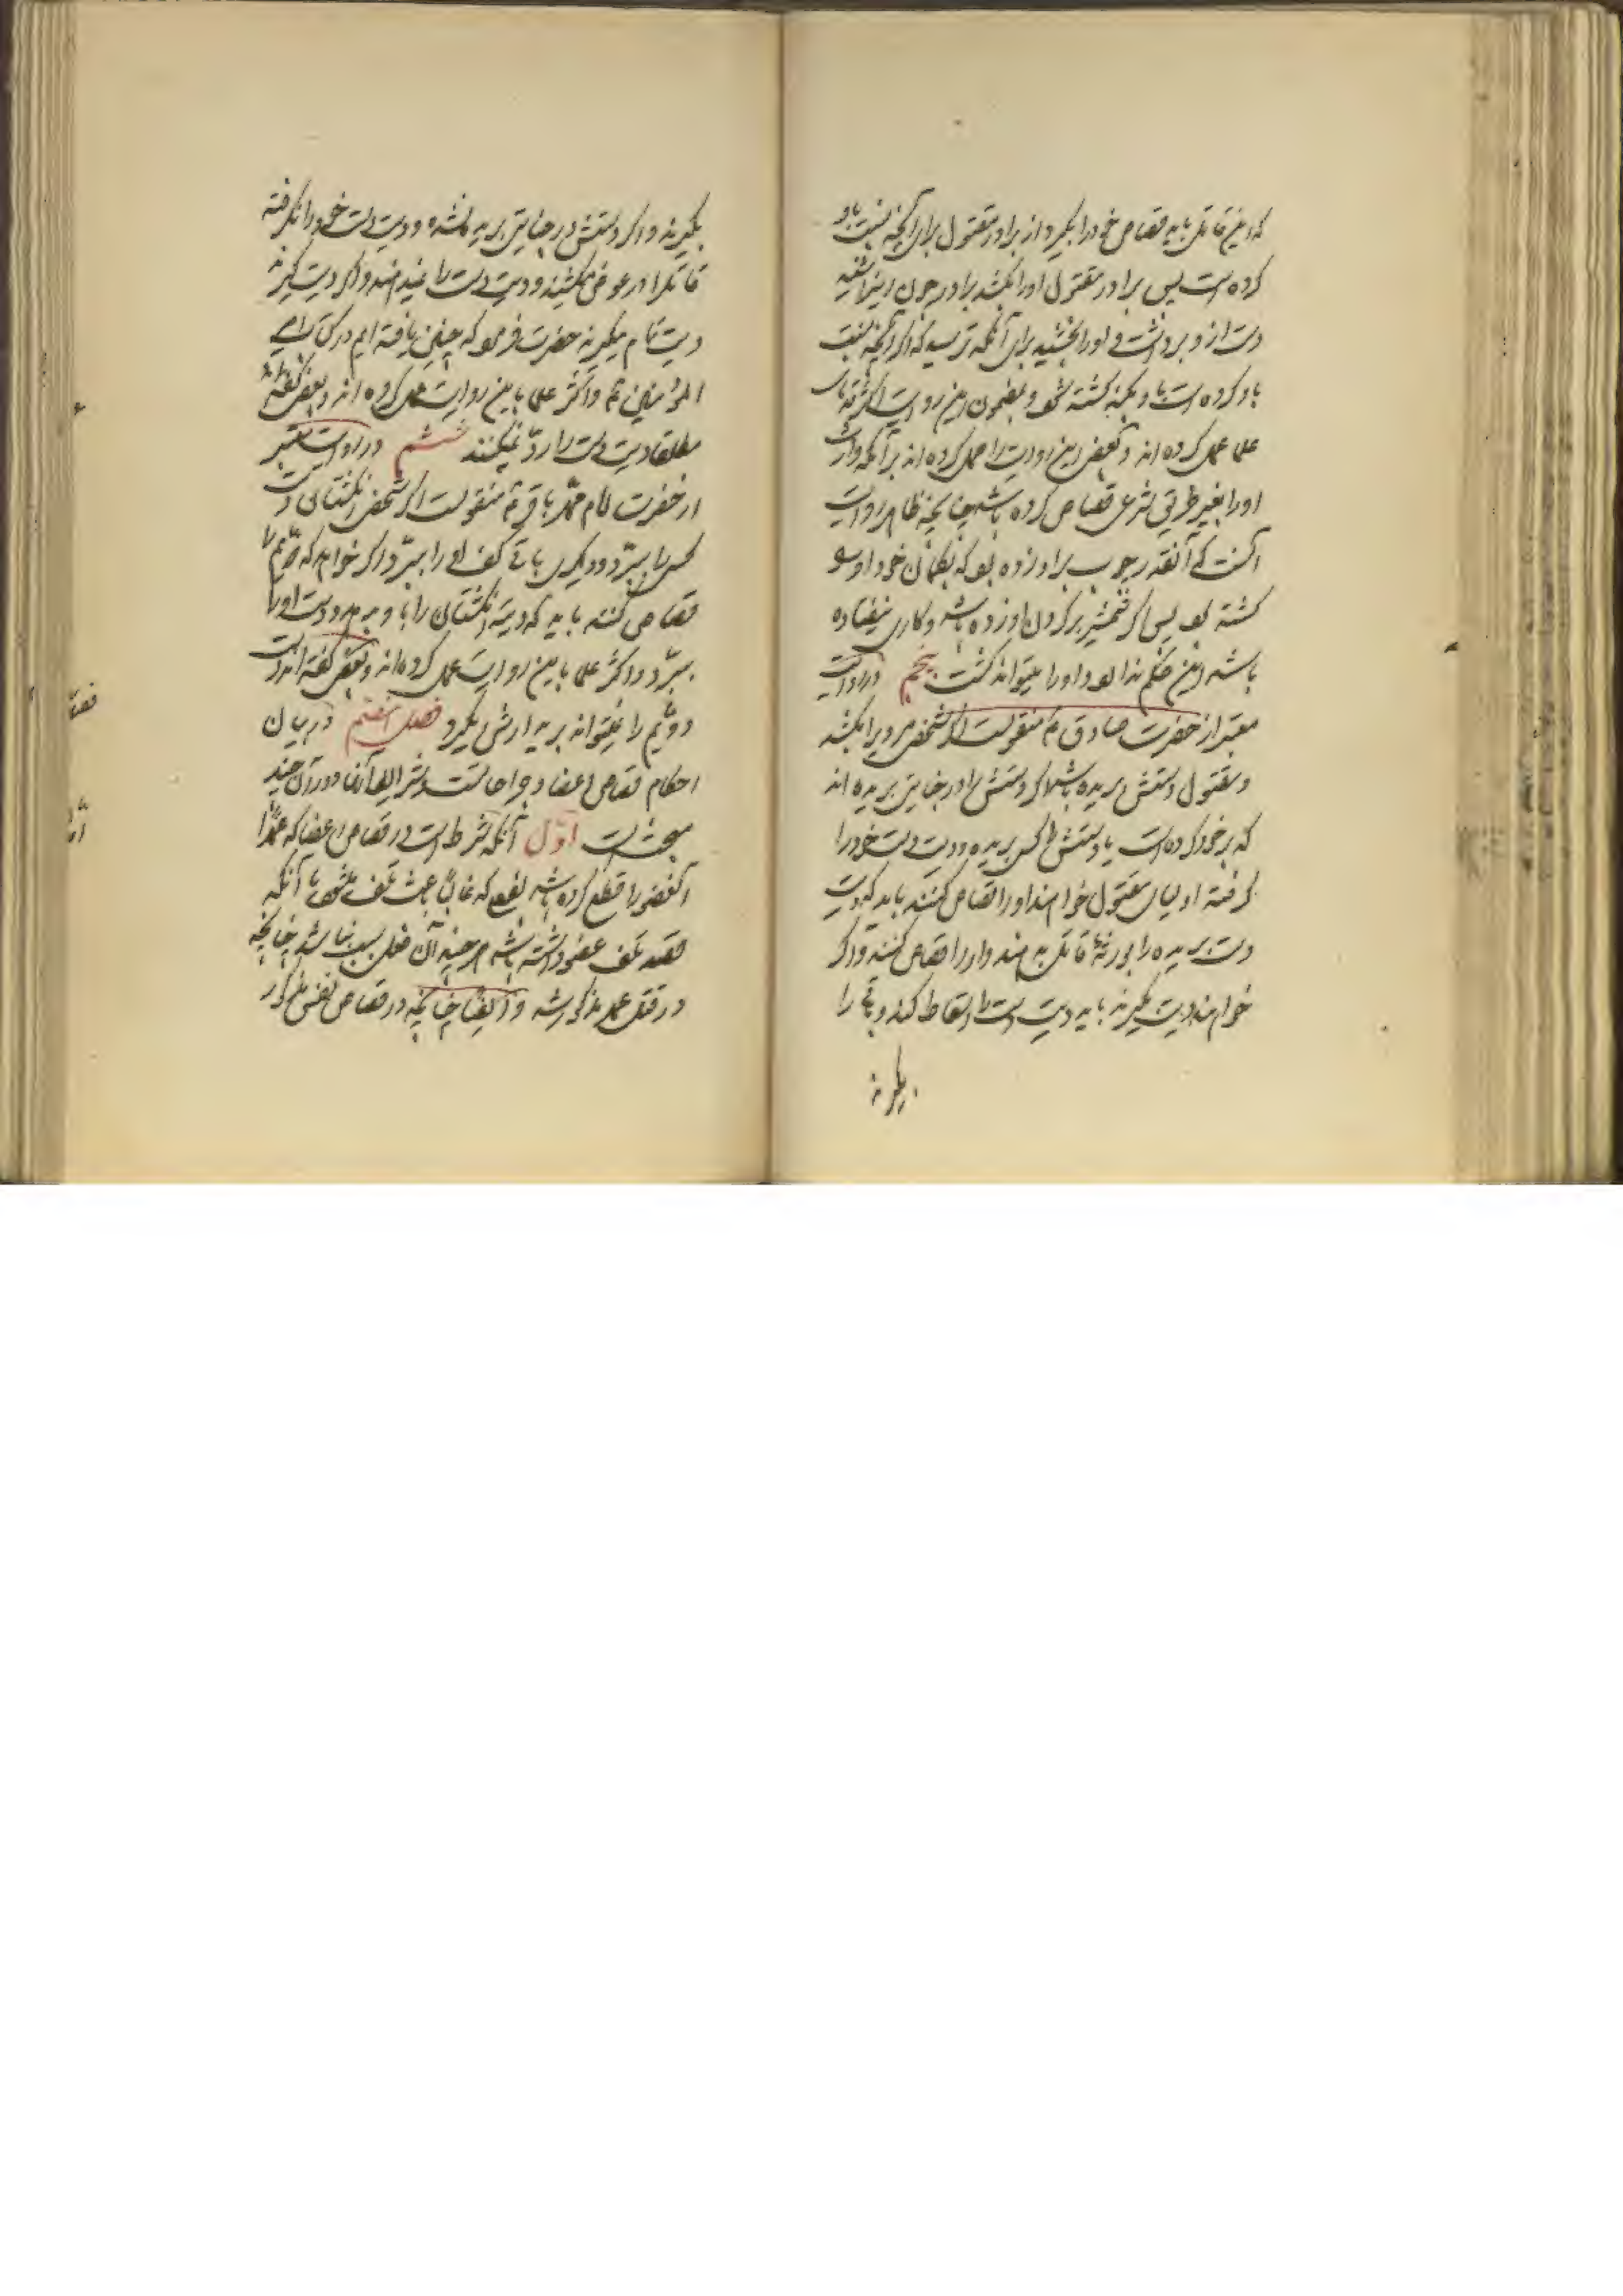 که این قاتل باید قصاص خود را بگیرد از برادر مقتول برای آنچه نسبت باو
کرده است پس برادر مقتول او را بکشد برادر چون این را شنید
دست از او برداشت و او را بخشید برای آنکه ترسید که اگر آنچه نسبت
باو کرده است باو بکند کشته شود و بمضمون این روایت اکثر قدمای
علما عمل کرده اند و بعضی این روایت را حمل کرده اند بر آنکه وارث
او را بغیر طریق شرعی قصاص کرده باشد چنانچه ظاهر روایت
آنست که آنقدر چوب بر او زده بود که بگمان خود او را
کشته بود پس اگر شمشیر بر گردن او زده باشد و کاری نیفتاده
باشد این حکم ندارد و او را میتواند کشت پنجم در روایت
معتبر از حضرت صادق ع منقولست که اگر شخصی مردیرا بکشد
و مقتول دستش بریده باشد اگر دستش را در جنایتی بریده اند
که بر خود کرده است یا دستش را کسی بریده و دیت دست خود را
گرفته اولیای مقتول خواهند او را قصاص کنند باید که دیت
دست بریده را بورثهٔ قاتل بدهند و او را قصاص کنند و اگر
خواهند دیت بگیرند باید دیت دست را اسقاط کند و باقی را
بگیرند
بگیرند و اگر دستش در جنایتی بریده نشده و دیت دست خود را نگرفته
قاتل را در عوض میکشند و دیت دست را نمیدهند و اگر دیت گیرند
دیت تمام میگیرند حضرت فرمود که چنین یافته ایم در کتاب امیر
المؤمنین ع و اکثر علما باین روایت عمل کرده اند و بعضی گفته اند
مطلقا دیت دست را رد نمیکنند ششم در روایت معتبر
از حضرت امام محمد باقر ع منقولست که اگر شخصی انگشتان دست
کسی را ببرد و دیگری باقی کف او را ببرد اگر خواهد که دویم را
قصاص کند باید که دیت انگشتان را باو بدهد و دست او را
ببرد و اکثر علما باین روایت عمل کرده اند و بعضی گفته اند دست
دویم را نمیتواند برید ارش میگیرد فصل هفتم در بیان
احکام قصاص اعضا و جراحاتست و شرایط آنها و در آن چند
مبحث است اول آنکه شرط است در قصاص اعضا که عمدا
آن عضو را قطع کرده باشد بفعلی که غالبا باعث تلف میشود یا آنکه
قصد تلف عضو داشته باشد هر چند آن فعل سبب نباشد چنانچه
در قتل عمد مذکور شد و ایضا چنانچه در قصاص نفس مذکور